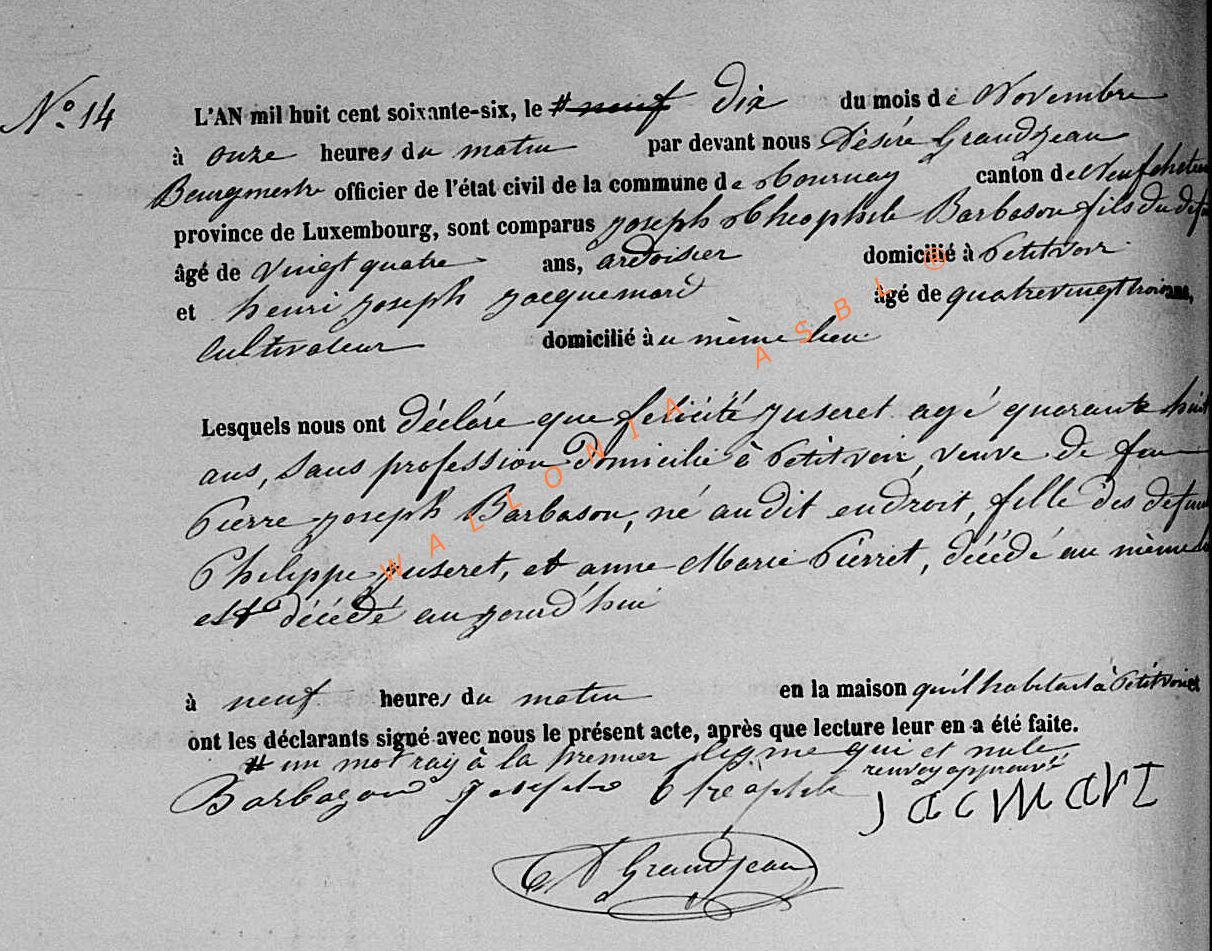 No 14
L'AN mil huit cent soixante-six, le # neuf Dix du mois de Novembre
à onze heures du matin par devant nous Désiré Grandjean
Bourgmestre officier de l'état civil de la commune de Tournay canton de Neufchateau
province de Luxembourg, sont comparus Joseph Theophile Barbason fils du défu
âgé de vingt quatre ans, ardoisier domicilié à Petitvoir
et henri joseph jacquemard âgé de quatrevingt trois ans,
Cultivateur domicilié à u même lieu
Lesquels nous ont déclaré que félicité juseret agé quarante huit
ans, sans profession domicilié à Petitvoir, veuve de feu
Pierre joseph Barbason, né audit endroit, fille des défun
Philippe juseret, et anne Marie Pierret, décédé au même
est décédé aujourd'hui
à neuf heures du matin en la maison qu'il habitait à Petitvoir et
ont les déclarants signé avec nous le présent acte, après que lecture leur en a été faite.
# un mot rayé à la premier ligne qui et nule
renvoy approuvé
Barbazon Joseph Théophile jacMart
D Grandjean
WALLONIA ASBL ®